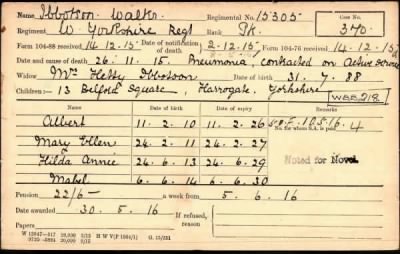 Name Ibbotson Walter Regimental No. 15305 Case No.
Regiment W. Yorkshire Regt Rank Pte. 370
Form 104-88 received 14.12.15 Date of notification of death 2.12.15 Form 104-76 received 14.12.15
Date and cause of death 26.11.15. Pneumonia, contracted on Active Service
Widow Mrs Hetty Ibbotson Date of birth 31.7.88
Children :— 13 Belford Square, Harrogate, Yorkshire
Date of birth Date of expiry Remarks
Albert 11.2.10 11.2.26
No. for whom S.A. is paid 4
Mary Ellen 24.2.11 24.2.27
Hilda Annie 24.6.13 24.6.29 Noted for Novel
Mabel 6.6.14 6.6.30
Pension 22/6 a week from 5.6.16
Date awarded 30.5.16 If refused, reason
Papers